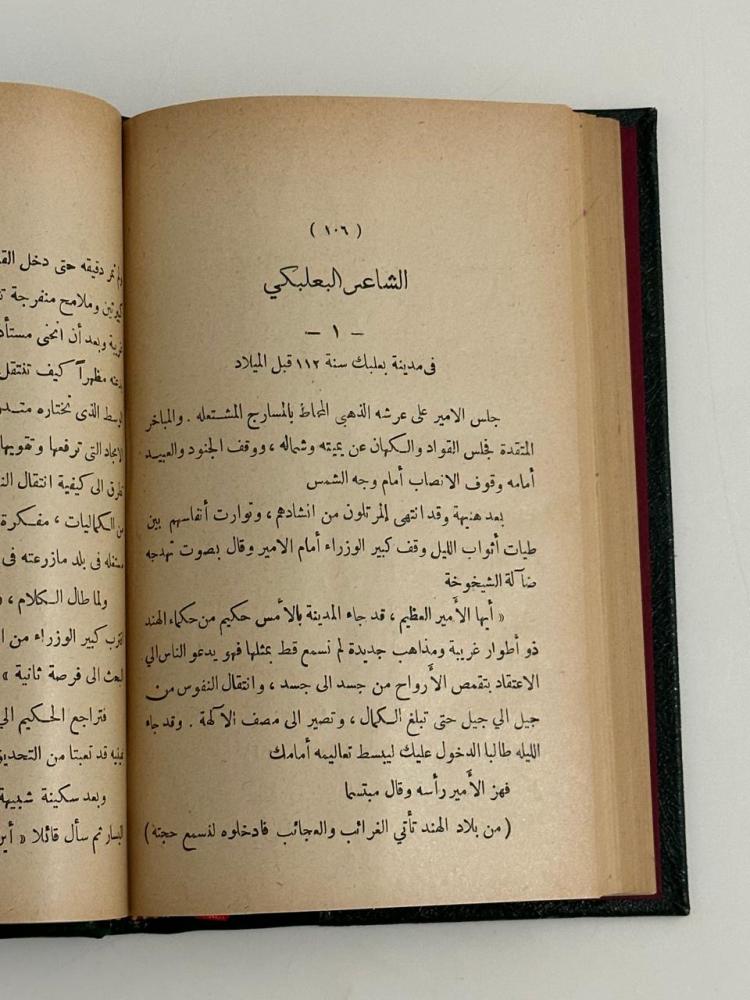 ( ١٠٦ )
الشاعر البعلبكي
— ١ —
فى مدينة بعلبك سنة ١١٢ قبل الميلاد
جلس الامير على عرشه الذهبي المحاط بالمسارج المشتعله . والمباخر
المتقدة فجلس القواد والكهان عن يمينه وشماله ، ووقف الجنود والعبيد
أمامه وقوف الانصاب أمام وجه الشمس
بعد هنيهة وقد انتهى المرتلون من انشادهم ، وتوارت أنفاسهم بين
طيات أثواب الليل وقف كبير الوزراء أمام الامير وقال بصوت تهدجه
ضآلة الشيخوخة
« أيها الأمير العظيم ، قد جاء المدينة بالأمس حكيم من حكماء الهند
ذو أطوار غريبة ومذاهب جديدة لم نسمع قط بمثلها فهو يدعو الناس الي
الاعتقاد بتقمص الأرواح من جسد الى جسد ، وانتقال النفوس من
جيل الي جيل حتى تبلغ الكمال ، وتصير الى مصف الآلهة . وقد جاء
الليله طالبا الدخول عليك ليبسط تعاليمه أمامك
فهز الأمير رأسه وقال مبتسما
( من بلاد الهند تأتي الغرائب والعجائب فادخلوه لنسمع حجته )
دقيقه حتى دخل
وملامح منفرجة
وبعد أن انحنى
مظهراً كيف تنتقل
الذى تختاره
التى ترفعها وتقويها
الى كيفية انتقال
الكماليات ، مفكرة
فى بلد مازرعته فى
ولما طال الكلام ،
كبير الوزراء من
الى فرصة ثانية »
فتراجع الحكيم
قد تعبتا من
وبعد سكينة شبيهة
ثم سأل قائلا «